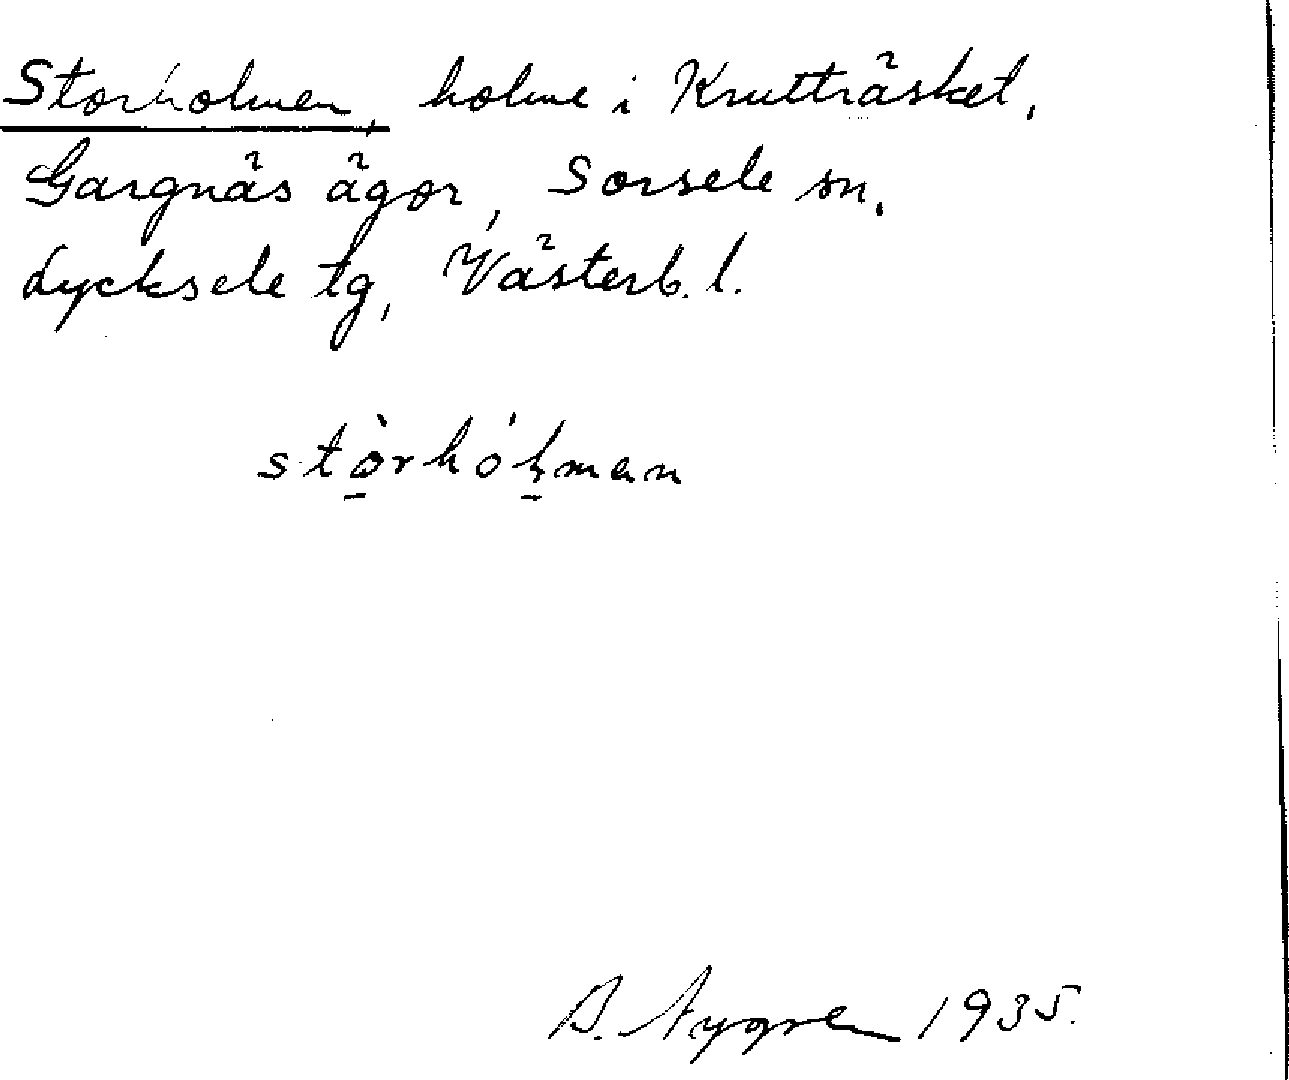 Storholmen, holme i Krutträsket,
Gargnäs ägor, Sorsele sn,
Lycksele tg, Västerb. l.
stò̱rhóḻman
A. Nygren 1935.